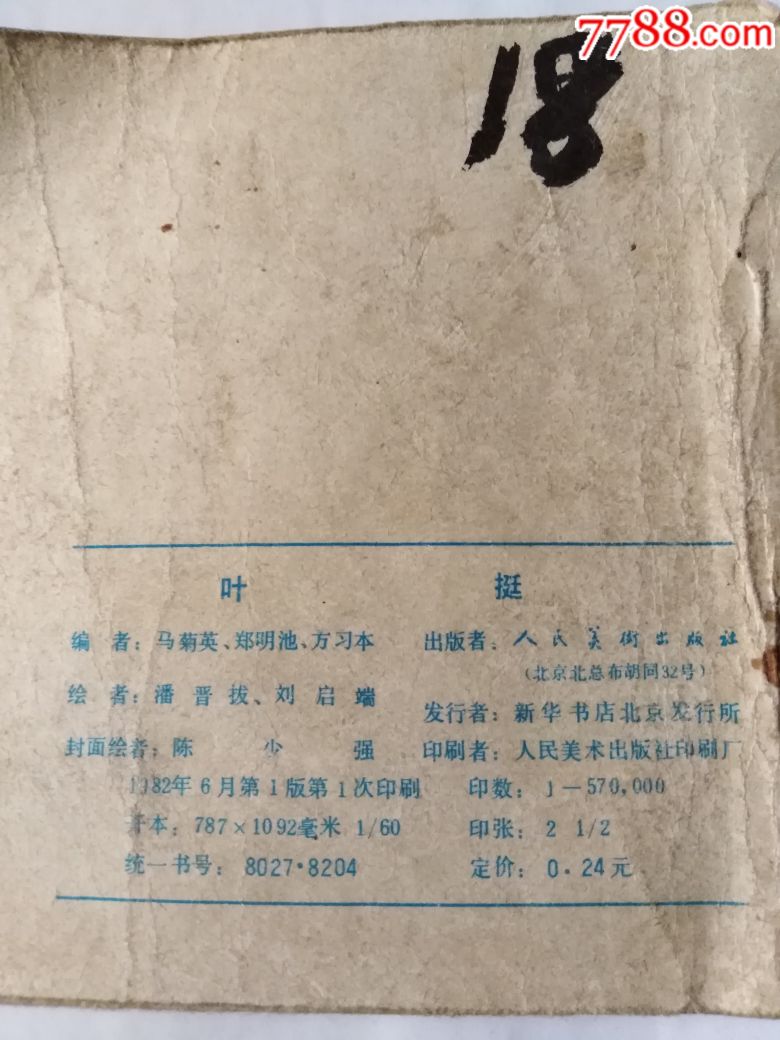 7788.com
18
叶 挺
编 者：马菊英、郑明池、方习本
绘 者：潘 晋 拔、刘 启 端
封面绘者：陈 少 强
出版者：人民美術出版社
（北京北总布胡同32号）
发行者：新华书店北京发行所
印刷者：人民美术出版社印刷厂
1982年6月第1版第1次印刷
印数：1—570,000
开本：787×1092毫米 1/60
印张：2 1/2
统一书号：8027·8204
定价：0.24元